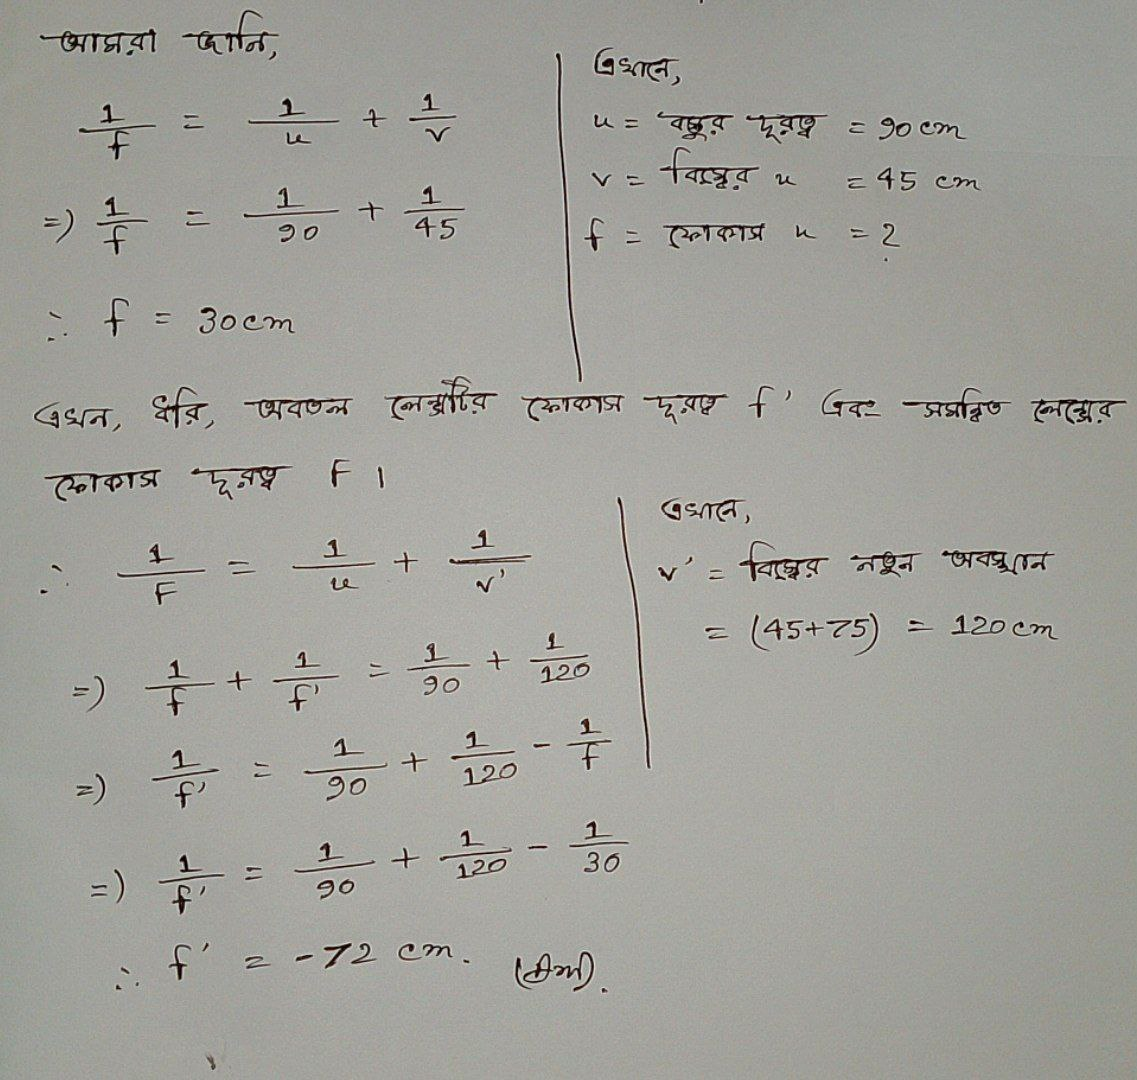 আমরা জানি,
1/f = 1/u + 1/v
=) 1/f = 1/90 + 1/45
∴ f = 30cm
এখানে,
u = বস্তুর দূরত্ব = 90 cm
v = বিম্বের " = 45 cm
f = ফোকাস " = ?
এখন, ধরি, অবতল লেন্সটির ফোকাস দূরত্ব f' এবং সমন্বিত লেন্সের
ফোকাস দূরত্ব F।
∴ 1/F = 1/u + 1/v'
=) 1/f + 1/f' = 1/90 + 1/120
=) 1/f' = 1/90 + 1/120 - 1/f
=) 1/f' = 1/90 + 1/120 - 1/30
∴ f' = -72 cm. (Am).
এখানে,
v' = বিম্বের নতুন অবস্থান
= (45+75) = 120 cm